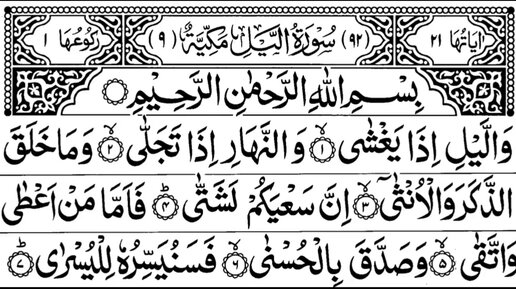 اٰیَاتُهَا ٢١ (٩٢) سُوْرَةُ الَّیْلِ مَكِّیَّةٌ (٩) رُكُوْعُهَا ١
بِسْمِ اللّٰهِ الرَّحْمٰنِ الرَّحِیْمِ
وَالَّیْلِ اِذَا یَغْشٰى ۙ﴿١﴾ وَالنَّهَارِ اِذَا تَجَلّٰى ۙ﴿٢﴾ وَمَا خَلَقَ
الذَّكَرَ وَالْاُنْثٰۤى ۙ﴿٣﴾ اِنَّ سَعْیَكُمْ لَشَتّٰى ؕ﴿٤﴾ فَاَمَّا مَنْ اَعْطٰى
وَاتَّقٰى ۙ﴿٥﴾ وَصَدَّقَ بِالْحُسْنٰى ۙ﴿٦﴾ فَسَنُیَسِّرُهٗ لِلْیُسْرٰى ؕ﴿٧﴾